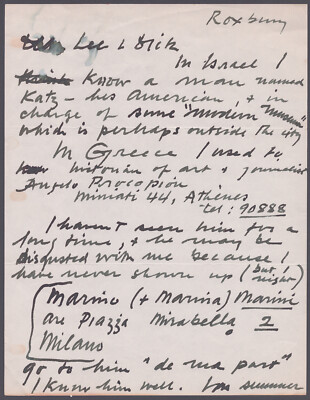 Roxbury
Lee & Dick
In Israel I
know a man named
Katz – hes American & in
charge of some "modern museum"
which is perhaps outside the city
In Greece I used to
historian of art & journalist
Angelo Procopiou
Miniati 44, Athènes
tel: 90888
I haven't seen him for a
long time, & he may be
disgusted with me because I
have never shown up (but I
might)
Marino (+ Marina) Marini
are Piazza Mirabella 2
Milano
go to him "de ma part"
I know him well. summer